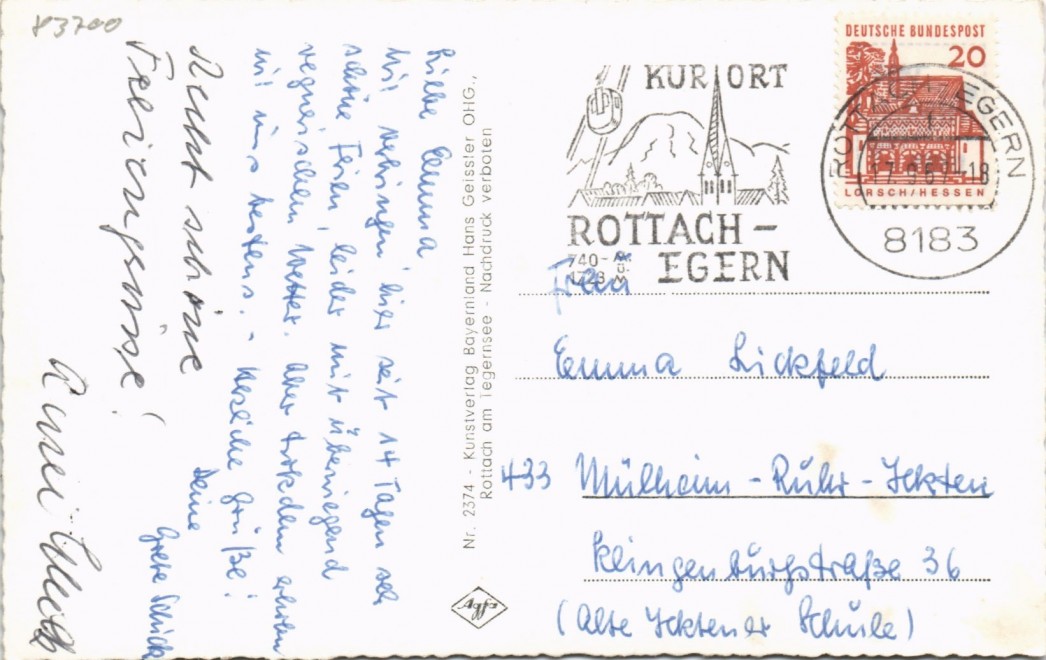 83700
Liebe Emma,
wir verbringen hier seit 14 Tagen sehr
schöne Ferien, leider mit überwiegend
regnerischem Wetter. Aber trotzdem erholen
wir uns bestens. - Herzliche Grüße!
Deine
Grete
Recht schöne
Feriengrüsse!
Nr. 2374 - Kunstverlag Bayernland Hans Geissler OHG.,
Rottach am Tegernsee - Nachdruck verboten
Agfa
KURORT
ROTTACH-
EGERN
740-
1728
ü.
M
DEUTSCHE BUNDESPOST
20
LORSCH/HESSEN
ROTTACH-EGERN
-18
8183
Frau
Emma Lickfeld
433 Mülheim-Ruhr-Ickten
Klingenburgstraße 36
(Alte Icktener Schule)